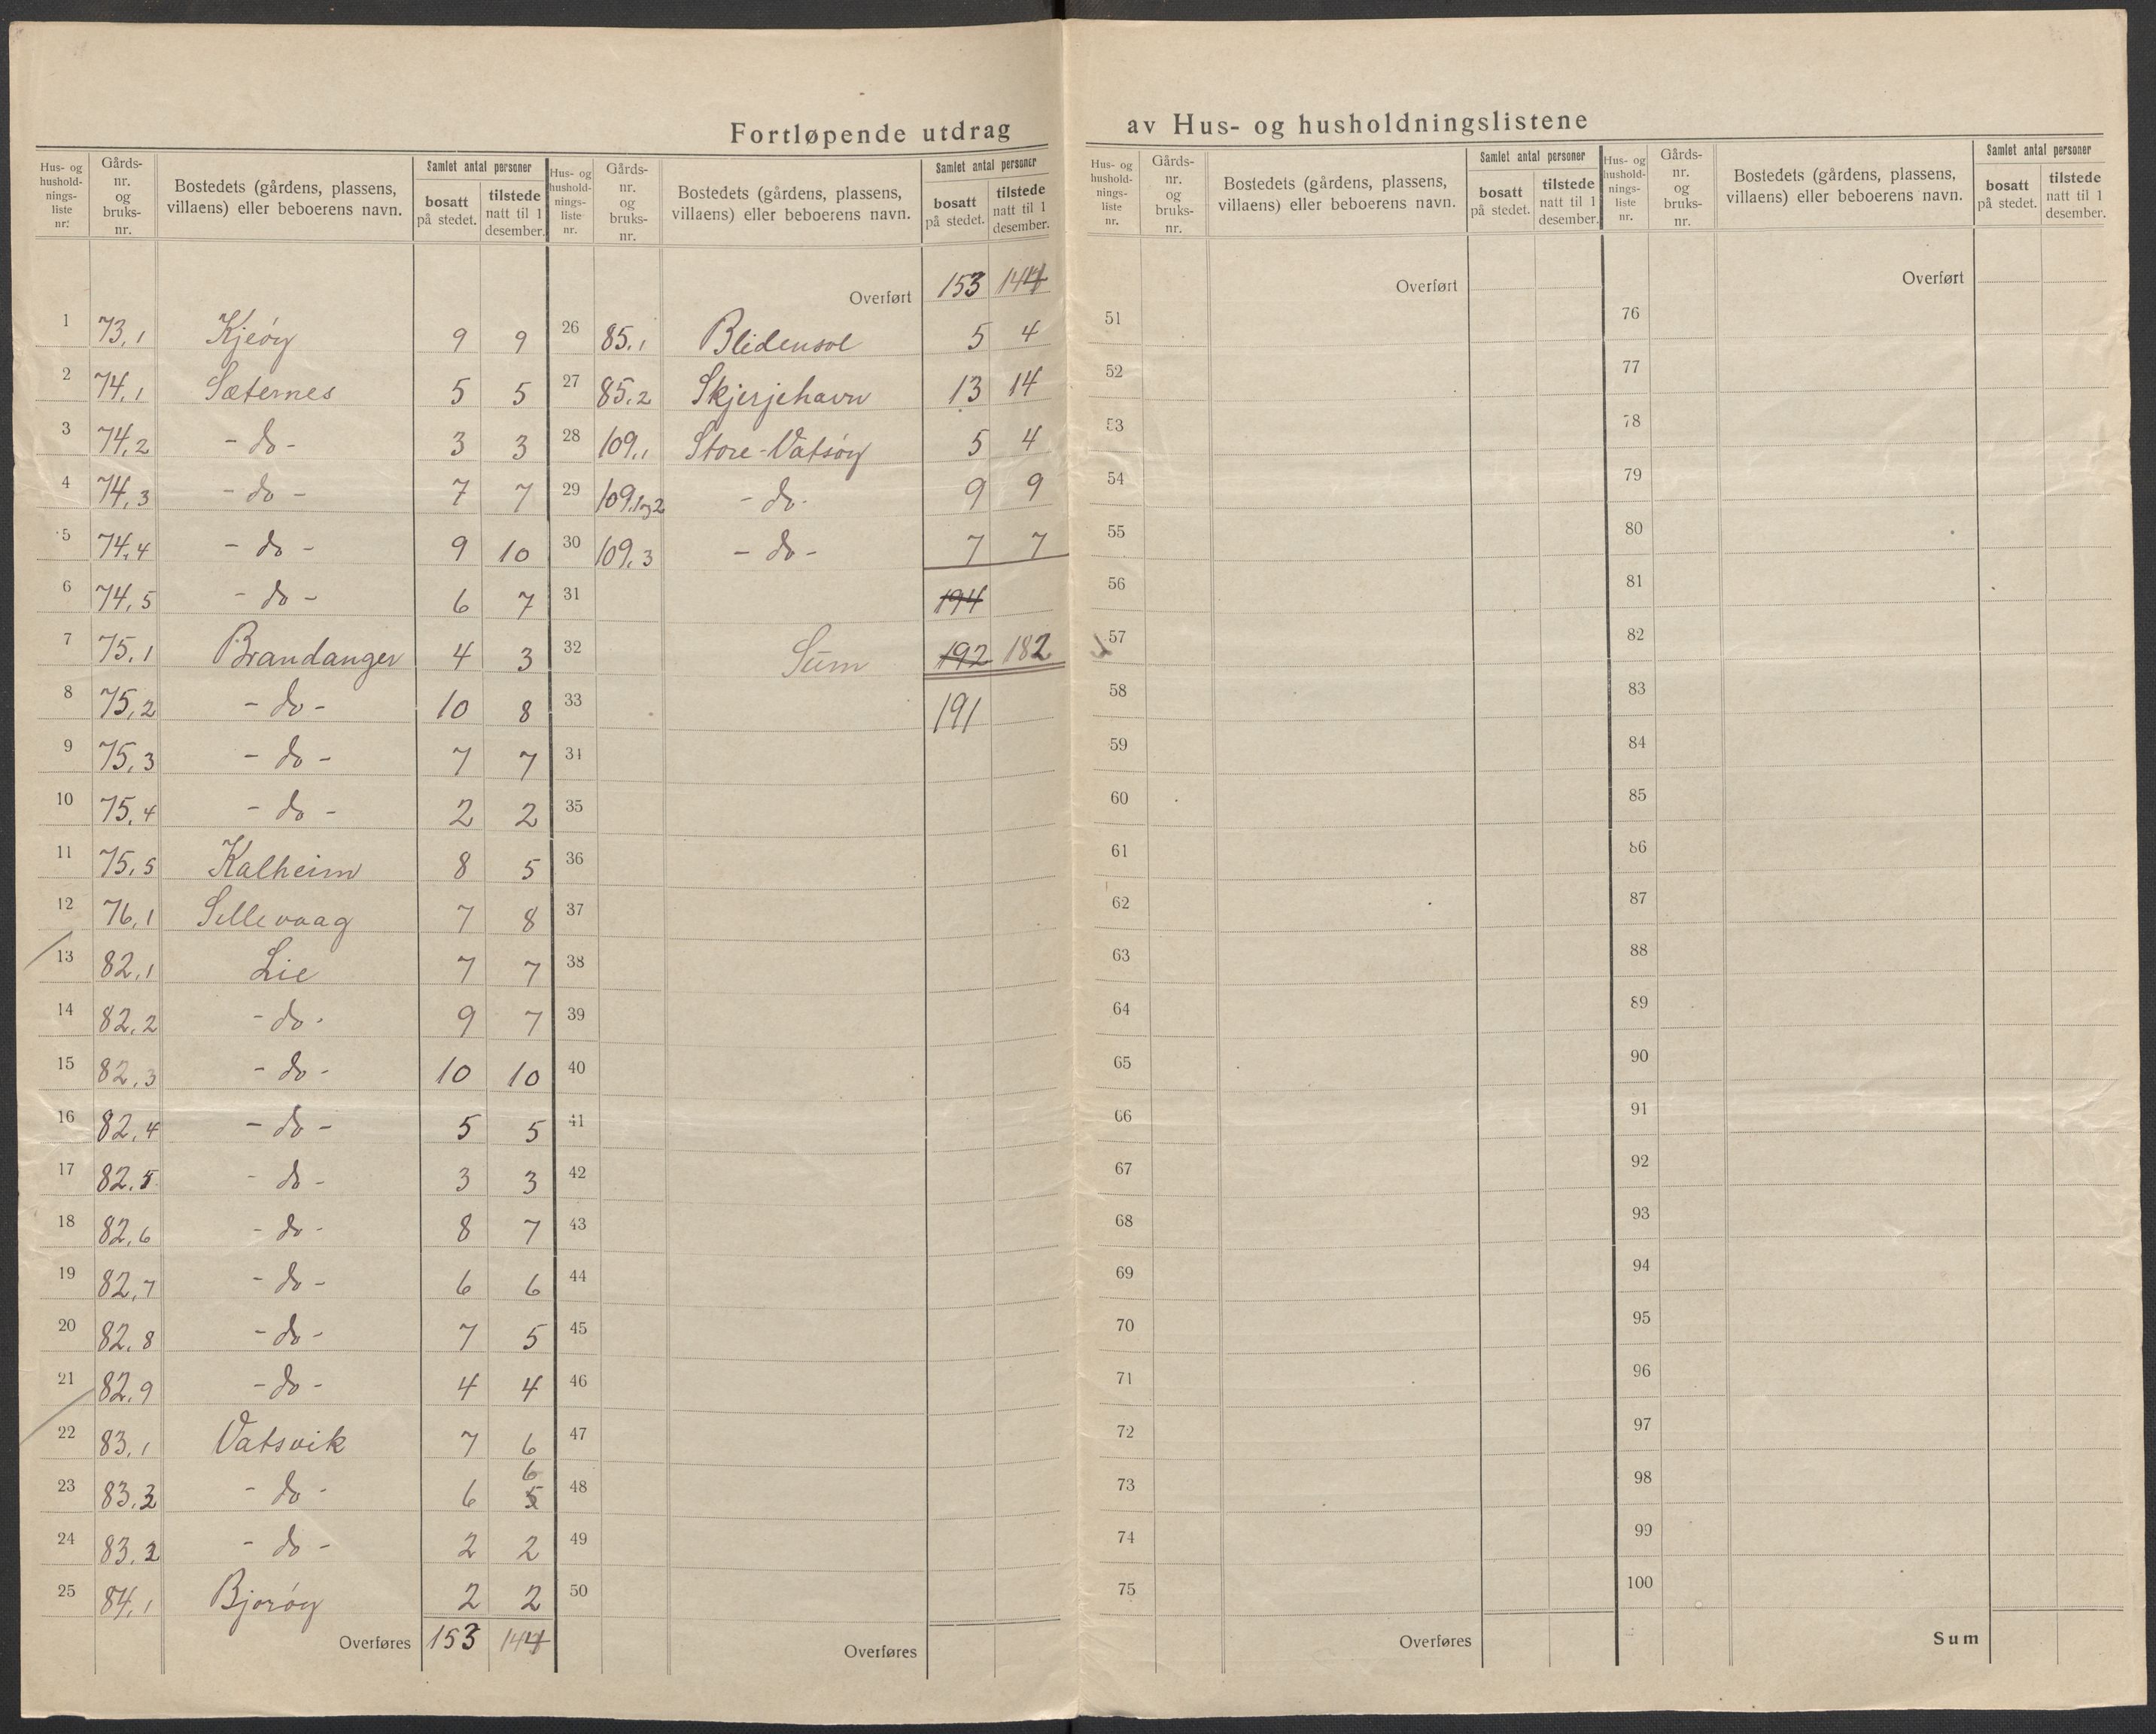 Fortløpende utdrag av Hus- og husholdningslistene
Hus- og hushold- nings- liste nr. Gårds- nr. og bruks- nr. Bostedets (gårdens, plassens, villaens) eller beboerens navn. Samlet antal personer bosatt på stedet. tilstede natt til 1 desember.
1 73,1 Kjeöy 9 9
2 74,1 Sæternes 5 5
3 74,2 - do - 3 3
4 74,3 - do - 7 7
5 74,4 - do - 9 10
6 74,5 - do - 6 7
7 75,1 Brandanger 4 3
8 75,2 - do - 10 8
9 75,3 - do - 7 7
10 75,4 - do - 2 2
11 75,5 Kalheim 8 5
12 76,1 Sellevaag 7 8
13 82,1 Lie 7 7
14 82,2 - do - 9 7
15 82,3 - do - 10 10
16 82,4 - do - 5 5
17 82,5 - do - 3 3
18 82,6 - do - 8 7
19 82,7 - do - 6 6
20 82,8 - do - 7 5
21 82,9 - do - 4 4
22 83,1 Vatsvik 7 6
23 83, - do - 6 6 5
24 83, - do - 2 2
25 84,1 Bjoröy 2 2
Overføres 153 144
Hus- og hushold- nings- liste nr. Gårds- nr. og bruks- nr. Bostedets (gårdens, plassens, villaens) eller beboerens navn. Samlet antal personer bosatt på stedet. tilstede natt til 1 desember.
Overført 153 144
26 85,1 Blidensol 5 4
27 85,2 Skjerjehavn 13 14
28 109,1 Store-Vatsöy 5 4
29 109,1og2 - do - 9 9
30 109,3 - do - 7 7
31 194
32 Sum 192 182
33 191
34
35
36
37
38
39
40
41
42
43
44
45
46
47
48
49
50
Overføres
Hus- og hushold- nings- liste nr. Gårds- nr. og bruks- nr. Bostedets (gårdens, plassens, villaens) eller beboerens navn. Samlet antal personer bosatt på stedet. tilstede natt til 1 desember.
Overført
51
52
53
54
55
56
57
58
59
60
61
62
63
64
65
66
67
68
69
70
71
72
73
74
75
Overføres
Hus- og hushold- nings- liste nr. Gårds- nr. og bruks- nr. Bostedets (gårdens, plassens, villaens) eller beboerens navn. Samlet antal personer bosatt på stedet. tilstede natt til 1 desember.
Overført
76
77
78
79
80
81
82
83
84
85
86
87
88
89
90
91
92
93
94
95
96
97
98
99
100
Sum